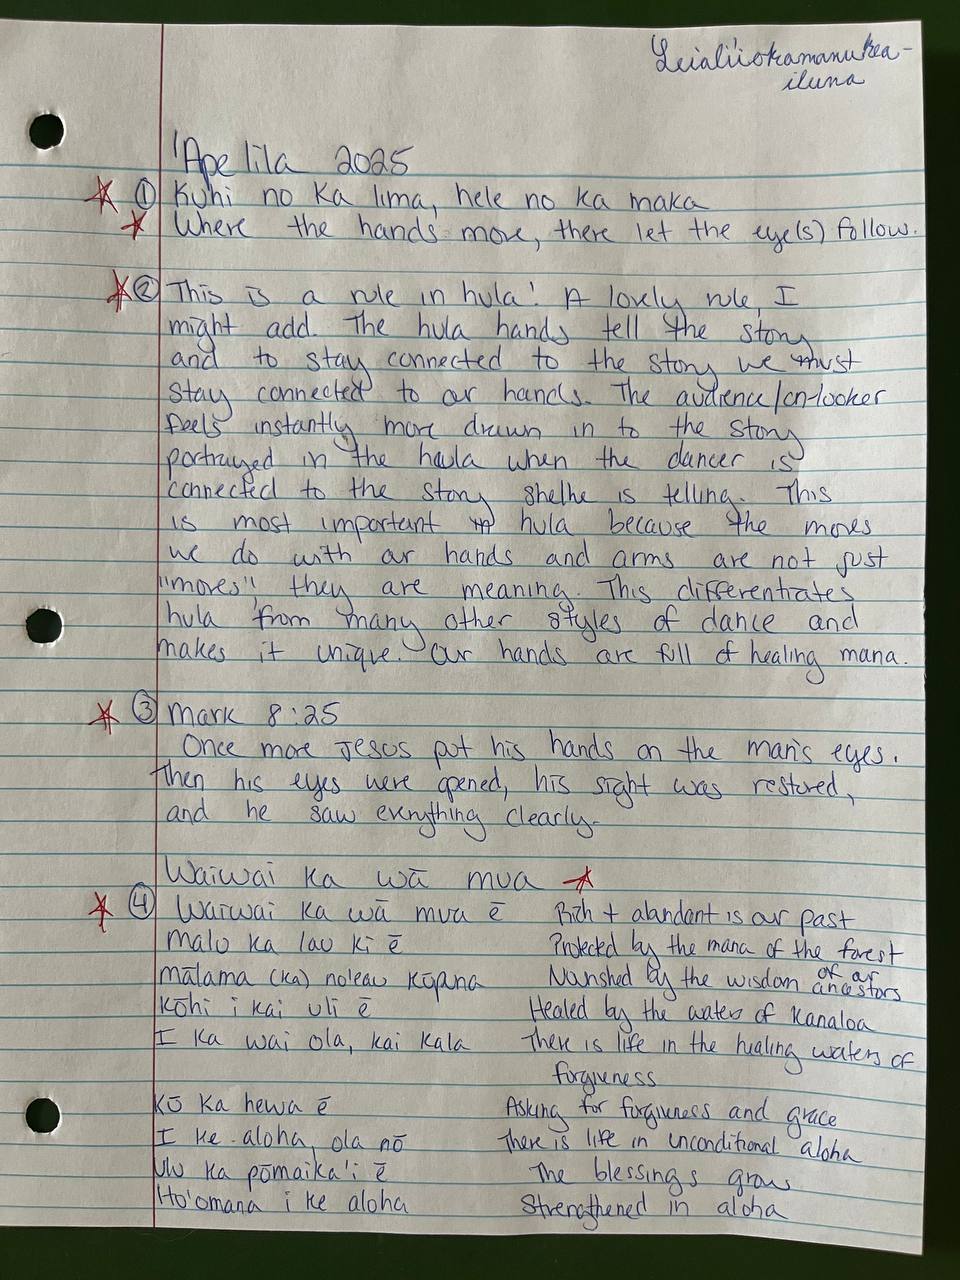 Leiali'iokamanukea-
iluna
'Apelila 2025
① Kuhi no ka lima, hele no ka maka
Where the hands move, there let the eye(s) follow.
② This is a rule in hula! A lovely rule, I
might add. The hula hands tell the story
and to stay connected to the story we must
stay connected to our hands. The audience/on-looker
feels instantly more drawn in to the story
portrayed in the hula when the dancer is
connected to the story she/he is telling. This
is most important in hula because the moves
we do with our hands and arms are not just
"moves", they are meaning. This differentiates
hula from many other styles of dance and
makes it unique. Our hands are full of healing mana.
③ Mark 8:25
Once more Jesus put his hands on the man's eyes.
Then his eyes were opened, his sight was restored,
and he saw everything clearly.
Waiwai ka wā mua
④ Waiwai ka wā mua ē Rich + abundant is our past
Malu ka lau kī ē Protected by the mana of the forest
mālama (ka) noleau kūpuna Nurished by the wisdom of our ancestors
Kōhi i kai uli ē Healed by the waters of Kanaloa
I ka wai ola, kai kala There is life in the healing waters of
forgiveness
Kū ka hewa ē Asking for forgiveness and grace
I ke aloha, ola nō There is life in unconditional aloha
Ulu ka pōmaika'i ē The blessings grow
Ho'omana i ke aloha Strengthened in aloha